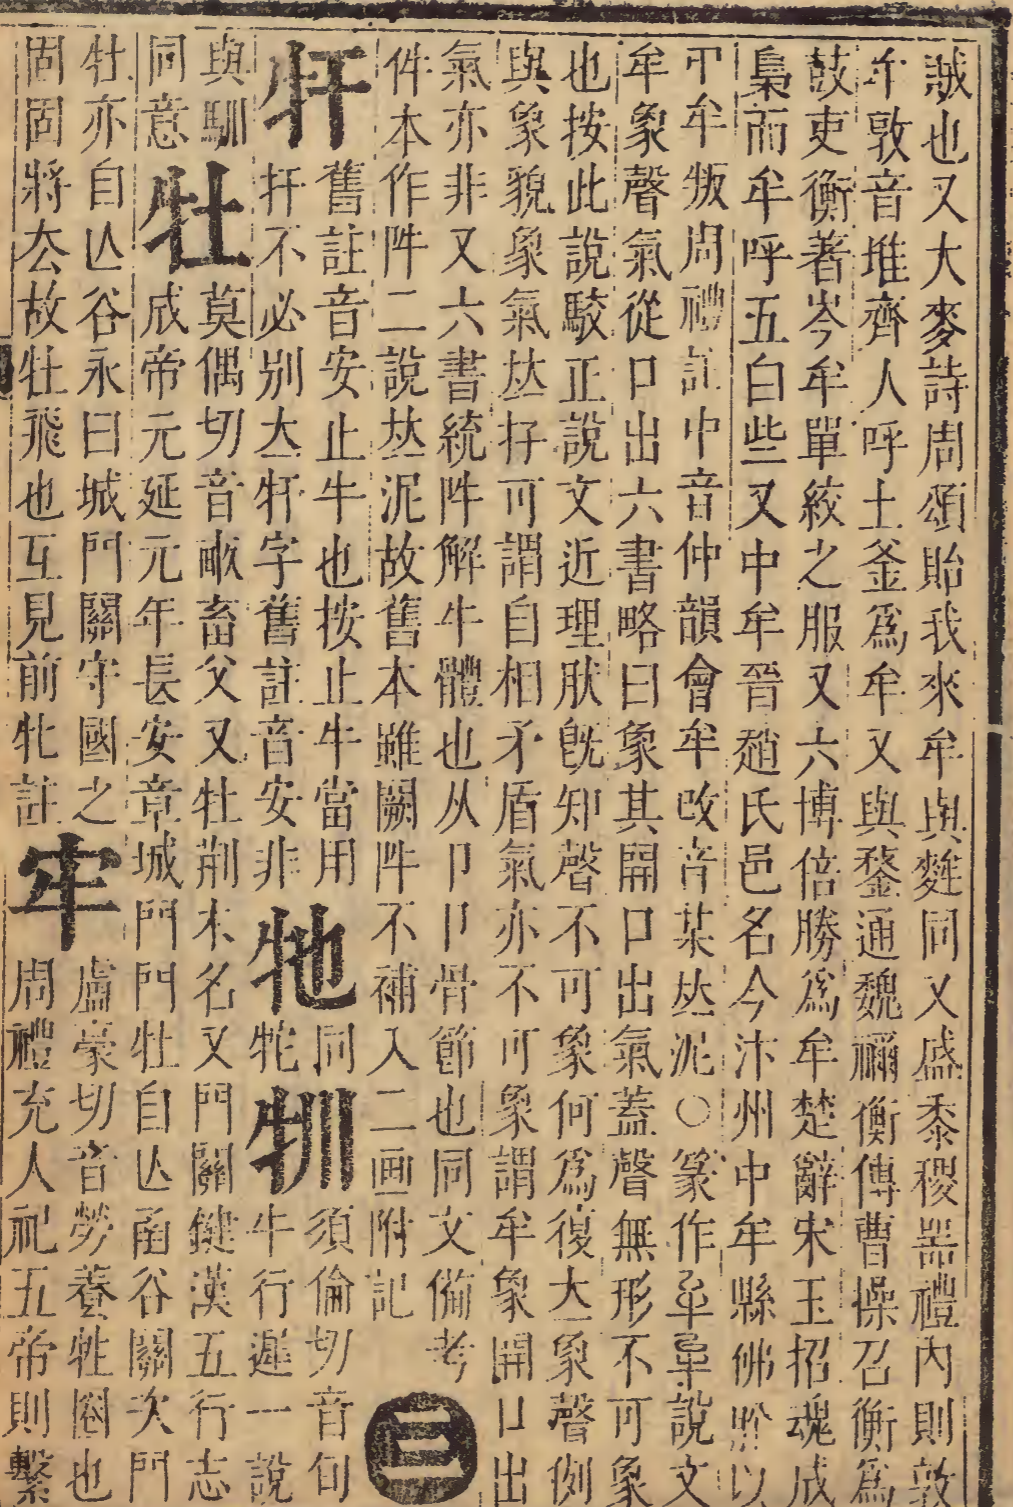 誠也又大麥詩周頌貽我來牟與麰同又盛黍稷噐禮內則敦
牟敦音堆齊人呼土釜爲牟又與鍪通魏禰衡傳曹操召衡爲
鼓吏衡著岑牟單絞之服又六博倍勝爲牟楚辭宋玉招魂成
梟而牟呼五白些又中牟晉趙氏邑名今汴州中牟縣佛肸以
中牟叛周禮註中音仲韻會牟改音某𠀤泥○篆作說文
牟象聲氣從口出六書略曰象其開口出氣蓋聲無形不可象
也按此說駮正說文近理肰旣知聲不可象何爲復大象聲例
與象貌象氣𠀤存可謂自相矛盾氣亦不可象謂牟象開口出
氣亦非又六書統解牛體也从卩卩骨節也同文備考
件本作二說𠀤泥故舊本雖闕不補入二画附記
三
㸩
舊註音安止牛也按止牛當用
扞不必別大㸩字舊註音安非
牠
同
㸰
㸪
須倫切音旬
牛行遲一說
與馴
同意
牡
莫偶切音畞畜父又牡荊木名又門關鍵漢五行志
成帝元延元年長安章城門門牡自亾函谷關次門
牡亦自亾谷永曰城門關守國之
固固將厺故牡飛也互見前牝註
牢
盧豪切音勞養牲圈也
周禮充人祀五帝則繫